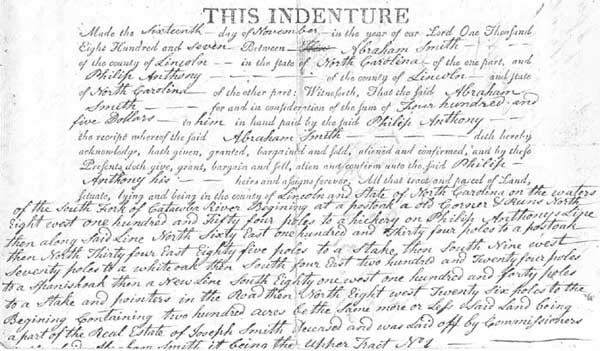 THIS INDENTURE
Made the Sixteenth day of November in the year of our Lord One Thousand
Eight Hundred and seven Between Abraham Smith
of the county of Lincoln in the state of North Carolina of the one part, and
Philip Anthony of the county of Lincoln and state
of North Carolina of the other part: Witnesseth, That the said Abraham
Smith for and in consideration of the sum of Four hundred and
five Dollars to him in hand paid by the said Philip Anthony
the receipt whereof the said Abraham Smith doth hereby
acknowledge, hath given, granted, bargained and sold, aliened and confirmed, and by these
Presents doth give, grant, bargain and sell, alien and confirm unto the said Philip
Anthony his heirs and assigns forever, All that trace and parcel of Land,
situate, lying and being in the county of Lincoln and State of North Carolina on the waters
of the South Fork of Catawba River Begining at a postoak a old Corner & Runs North
Eight west one hundred and Fifty four poles to a hickery on Philip Anthonys Line
then along Said Line North Sixty East one hundred and thirty four poles to a postoak
then North Thirty four East Eighty five poles to a Stake, then South Nine west
Seventy poles to a white oak then South four East two hundred and Twenty four poles
to a Spanish oak then a New Line South Eighty one west one hundred and forty poles
to a Stake and pointers in the Road then North Eight west Twenty Six poles to the
Begining Containing two hundred acres be the Same more or Less Said Land being
a part of the Real Estate of Joseph Smith Deceased and was laid off by Commissioners
Smith it being the Upper Tract No 1